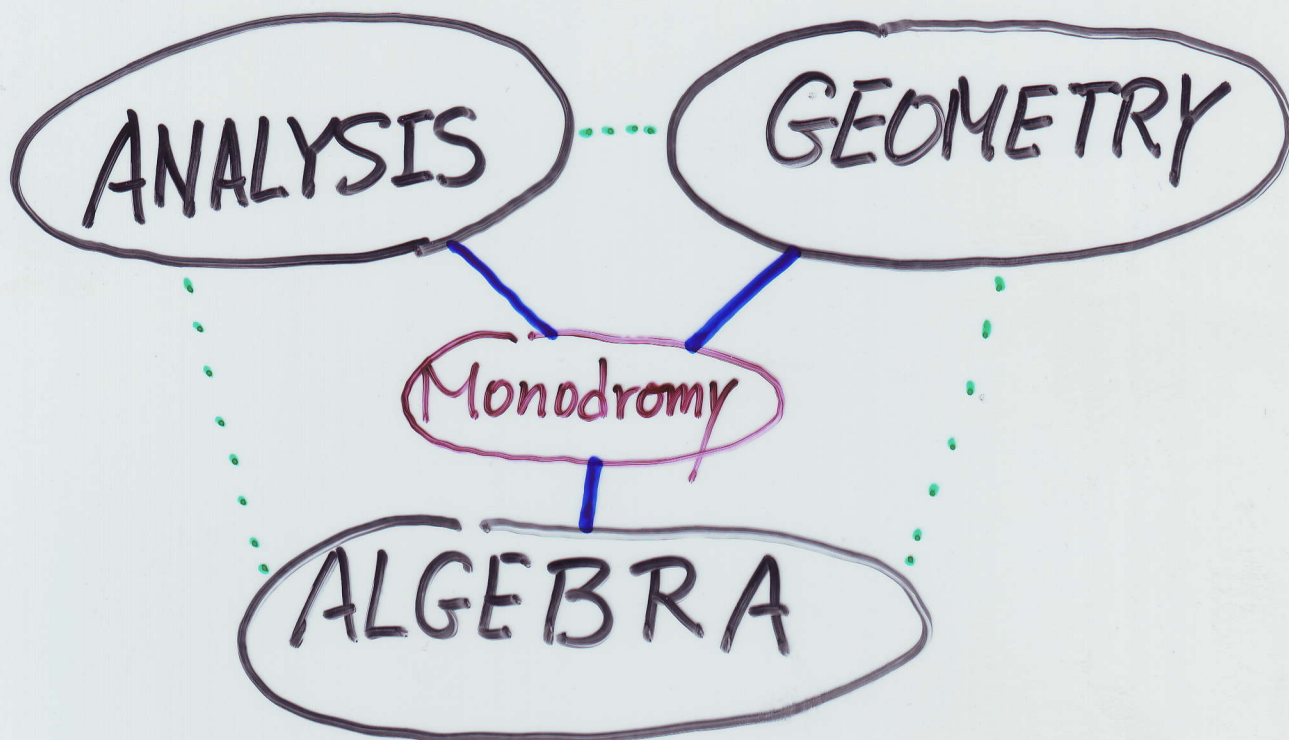 ANALYSIS
GEOMETRY
Monodromy
ALGEBRA